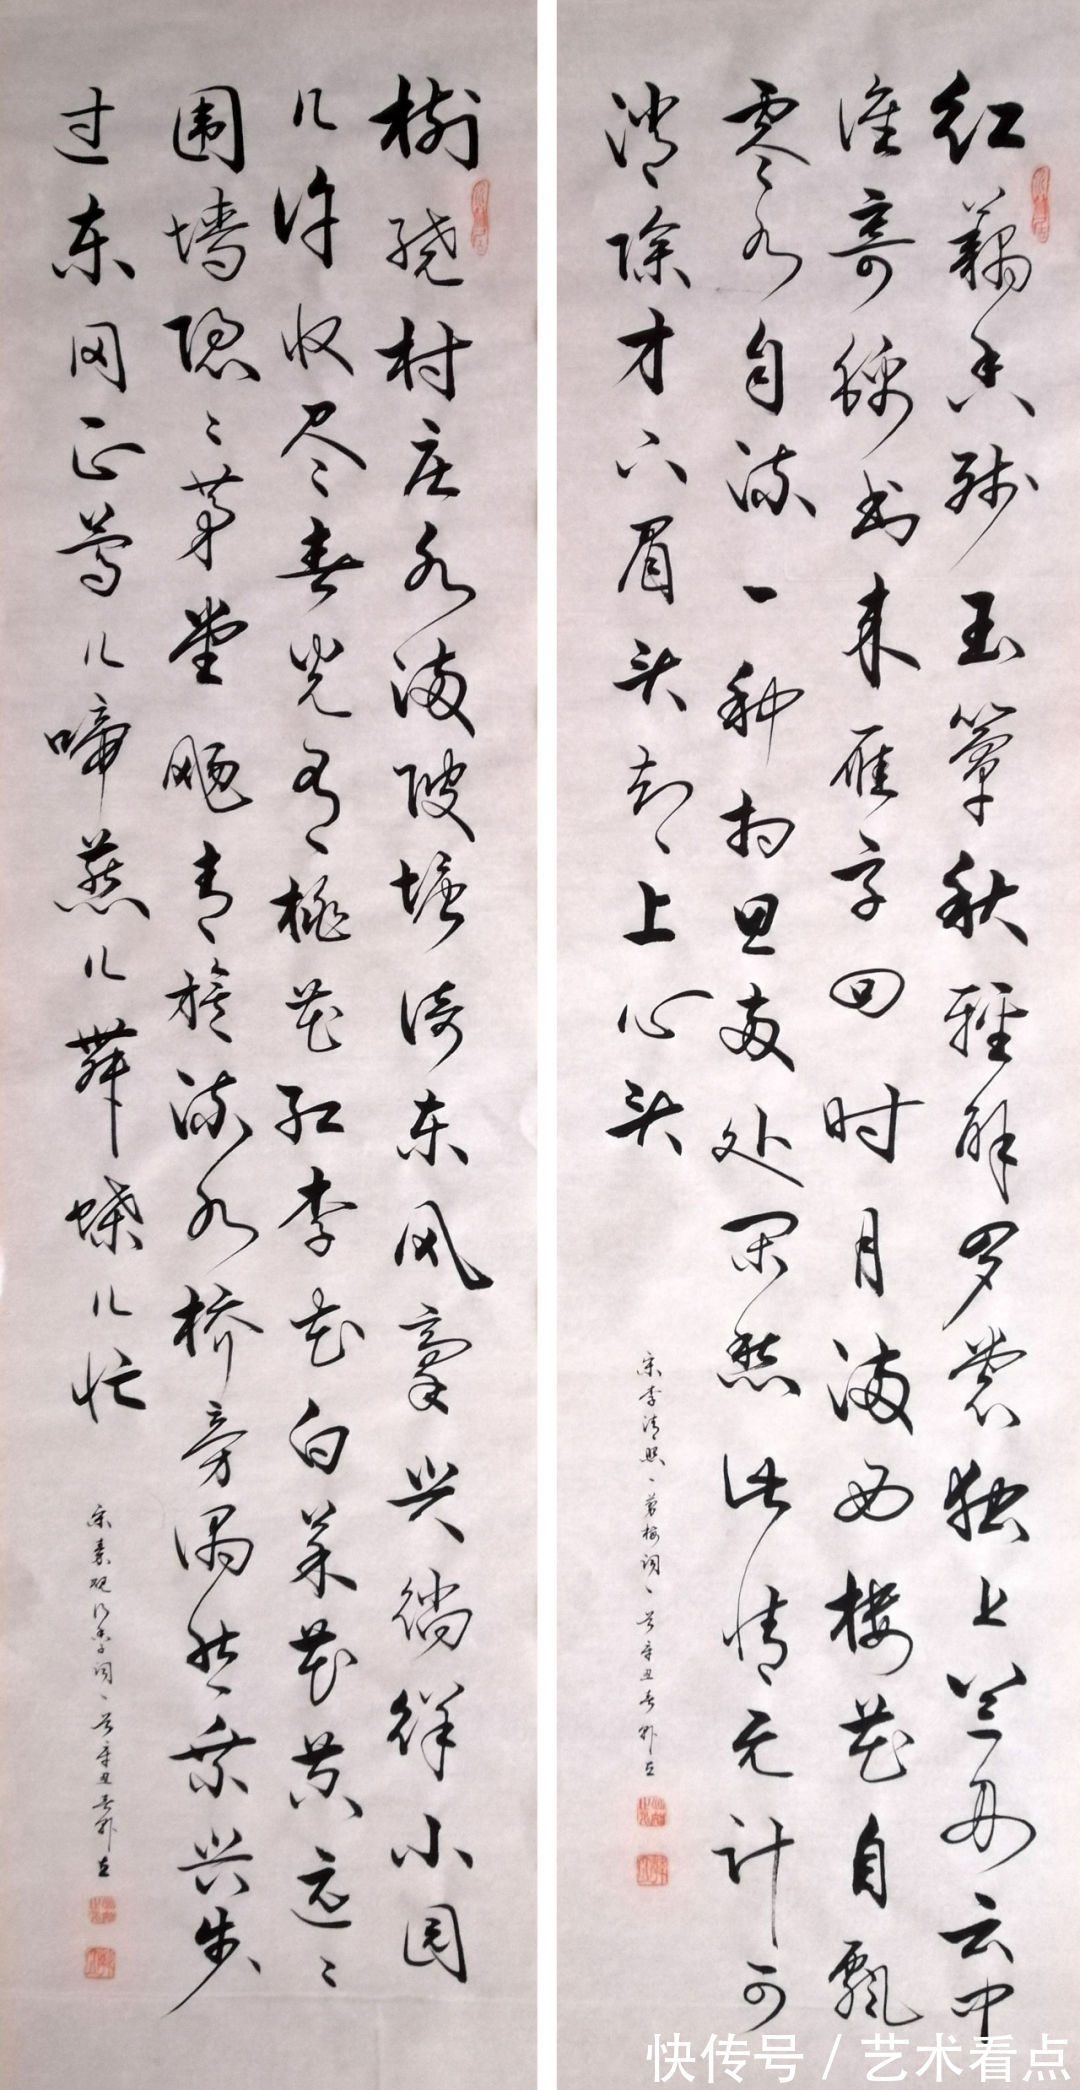 红藕香残玉簟秋轻解罗裳独上兰舟云中
谁寄锦书来雁字回时月满西楼花自飘
零水自流一种相思两处闲愁此情无计可
消除才下眉头却上心头
宋李清照一剪梅词一首辛丑春
树绕村庄水满陂塘倚东风豪兴徜徉小园
几许收尽春光有桃花红李花白菜花黄远远
围墙隐隐茅堂飏青旗流水桥旁偶然乘兴步
过东冈正莺儿啼燕儿舞蝶儿忙
宋秦观行香子词一首辛丑春
快传号 / 艺术看点